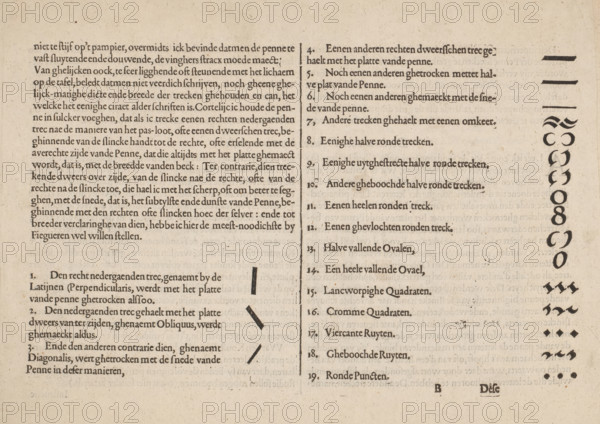 niet te stijf op't pampier, overmidts ick bevinde datmen de penne te
vast sluytende ende douwende, de vinghers strax moede maeckt:
Van ghelijcken oock, te seer ligghende oft steunende met het lichaem
op de tafel, beledt datmen niet veerdich schrijven, noch gheene ghe-
lijck-matighe dicte ende breede der trecken ghehouden en can, het
welcke het eenighe ciraet alder schriften is. Cortelijc ic houde de pen-
ne in sulcker voeghen, dat als ic trecke eenen rechten nedergaenden
trec na de maniere van het pas-loot, oft eenen dweerschen trec, be-
ghinnende van de slincke handt tot de rechte, oft
averechte zijde vande Penne, dat die altijdts met het platte ghemaeckt
wordt, dat is, met de breedde vanden beck: Ter contrarie, dien trec-
kende dweers over zijde, van de slincke na de rechte, oft van de
rechte na de slincke toe, die hael ic met het scherp, oft om beter te seg-
ghen, met de snede, dat is, het subtylste ende dunste vande Penne, be-
ghinnende met den rechten oft slincken hoec der selver: ende tot
breeder verclaringhe van dien, hebbe ic hier de meest-noodichste by
Fiegueren wel willen stellen.
1. Den recht nedergaenden trec, genaemt by de
Latijnen (Perpendicularis, werdt met het platte
vande penne ghetrocken alsoo.
2. Den nedergaenden trec gehaelt met het platte
dweers van ter zijden, ghenaemt Obliquus, werde
ghemaeckt aldus.
3. Ende den anderen contrarie dien, ghenaemt
Diagonalis, wert ghetrocken met de snede vande
Penne in deser manieren,
4. Eenen anderen rechten dweersschen trec ge-
haelt met het platte vande penne.
5. Noch eenen anderen ghetrocken mettet hal-
ve plat vande Penne.
6. Noch eenen anderen ghemaeckt met de sne-
de vande penne.
7, Andere trecken ghehaelt met eenen omkeer.
8. Eenighe halve ronde trecken.
9. Eenighe uytghestrecte halve ronde trecken.
10. Andere gheboochde halve ronde trecken.
11. Eenen heelen ronden treck.
12. Eenen ghevlochten ronden treck.
13. Halve vallende Ovalen,
14. Een heele vallende Ovael,
15. Lancworpighe Quadraten.
16. Cromme Quadraten.
17. Viercante Ruyten.
18. Gheboochde Ruyten.
19. Ronde Puncten.
B Dese
PHOTO 12